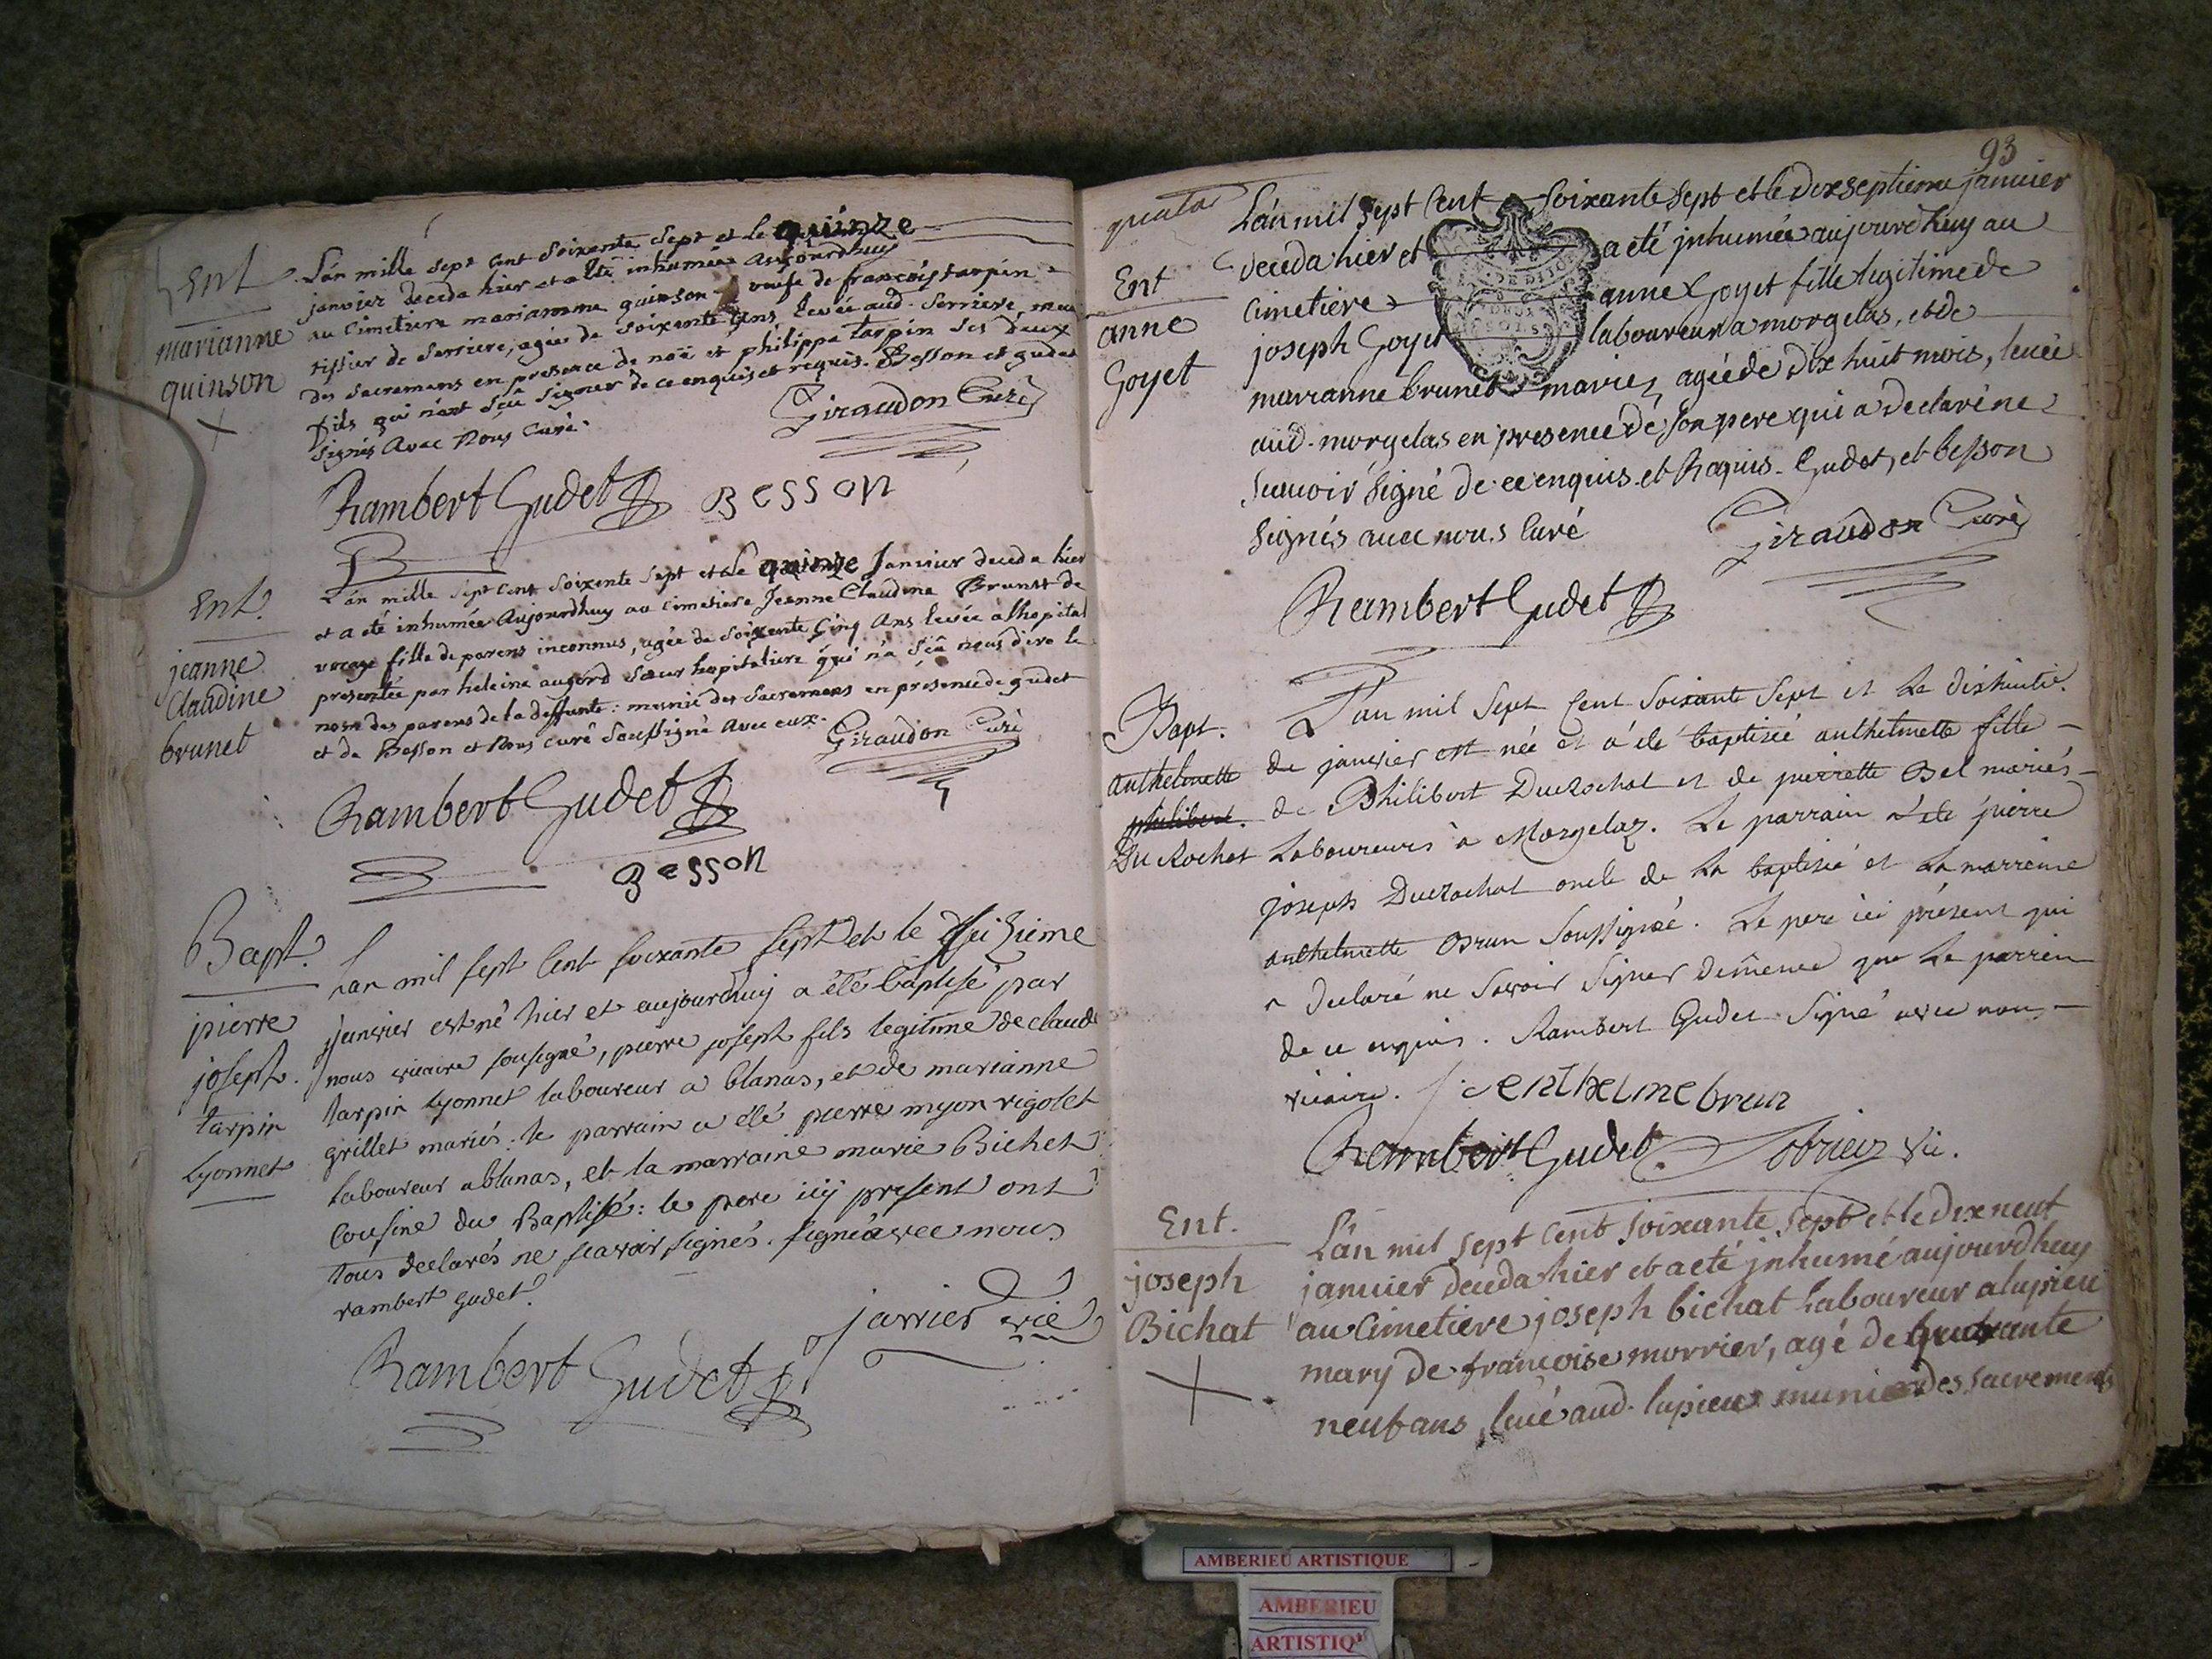 Ent
marianne
quinson
L'an mille sept cent soixente sept et le quinze
janvier deceda hier et a été inhumée aujourdhuy
au cimetiere marianne quinson veufe de françois tarpin
tissier de serriere, agée de soixente ans levée aud. serriere, munie
des sacremens en presence de noë et philippe tarpin ses deux
fils qui n'ont sçû signer de ce enquis et requis. Besson et gudet
signés avec nous curé.
Giraudon Curé
Rambert Gudet
Besson
Ent.
jeanne
Claudine
brunet
L'an mille sept cent soixente sept et le quinze Janvier deceda hier
et a été inhumée aujourdhuy au cimetiere Jeanne Claudine Brunet de
vocage fille de parens inconnus, agée de soixente cinq ans levée a lhopital
presentée par heleine augerd sœur hopitaliere qui n'a sçû nous dire le
nom des parens de la deffunte : munie des sacremens en presence de gudet
et de Besson et nous curé soussigné avec eux.
Giraudon Curé
Rambert Gudet
Besson
Bapt.
pierre
joseph.
tarpin
Lyonnet
L'an mil sept cent soixante sept et le seizieme
janvier est né hier et aujourdhuy a été baptisé par
nous vicaire sousigné, pierre joseph fils legitime de claude
tarpin Lyonnet laboureur a blanas, et de marianne
grillet mariés : le parrain a été pierre myon rigolet
laboureur a blanas, et la marraine marie Bichet
Cousine du Baptisé : le pere icy present ont
tous declarés ne scavoir signés. signé avec nous
rambert gudet.
Rambert Gudet
jarrier vic
93
Ent
anne
Goyet
L'an mil sept cent soixante sept et le dixseptieme janvier
deceda hier et a eté jnhumée aujourdhuy au
cimetiére anne Goyet fille legitime de
joseph Goyet laboureur a morgelas, et de
marianne brunet mariez, agée de dix huit mois, levée
aud. morgelas en presence de son pere qui a declaré ne
scavoir signé de ce enquis et Requis. Gudet, et besson
signés avec nous Curé
Giraudon Curé
Rambert Gudet
Bapt.
anthelmette
philibert.
Du Rochat
L'an mil sept cent soixante sept et le dixhuitie.
de janvier est née et a été baptisée anthelmette fille
de Philibert DuRochat et de pierrette Bel mariés
Laboureurs à Morgelaz. Le parrain a été pierre
joseph DuRochat oncle de la baptisée et la marreine
anthelmette Brun soussignée. Le pere ici présent qui
a declaré ne savoir signer demême que le parrein
de ce enquis. Rambert Gudet signé avec nous
vicaire.
enthelme brun
Rambert Gudet
vic.
Ent.
joseph
Bichat
L'an mil sept cent soixante sept et le dix neuf
janvier deceda hier et a eté jnhumé aujourdhuy
au cimetiere joseph bichat Laboureur a lupieu
mary de françoise morrier, agé de
neuf ans, levé aud. lupieu muni des sacremens
AMBERIEU ARTISTIQUE
AMBERIEU
ARTISTIQ